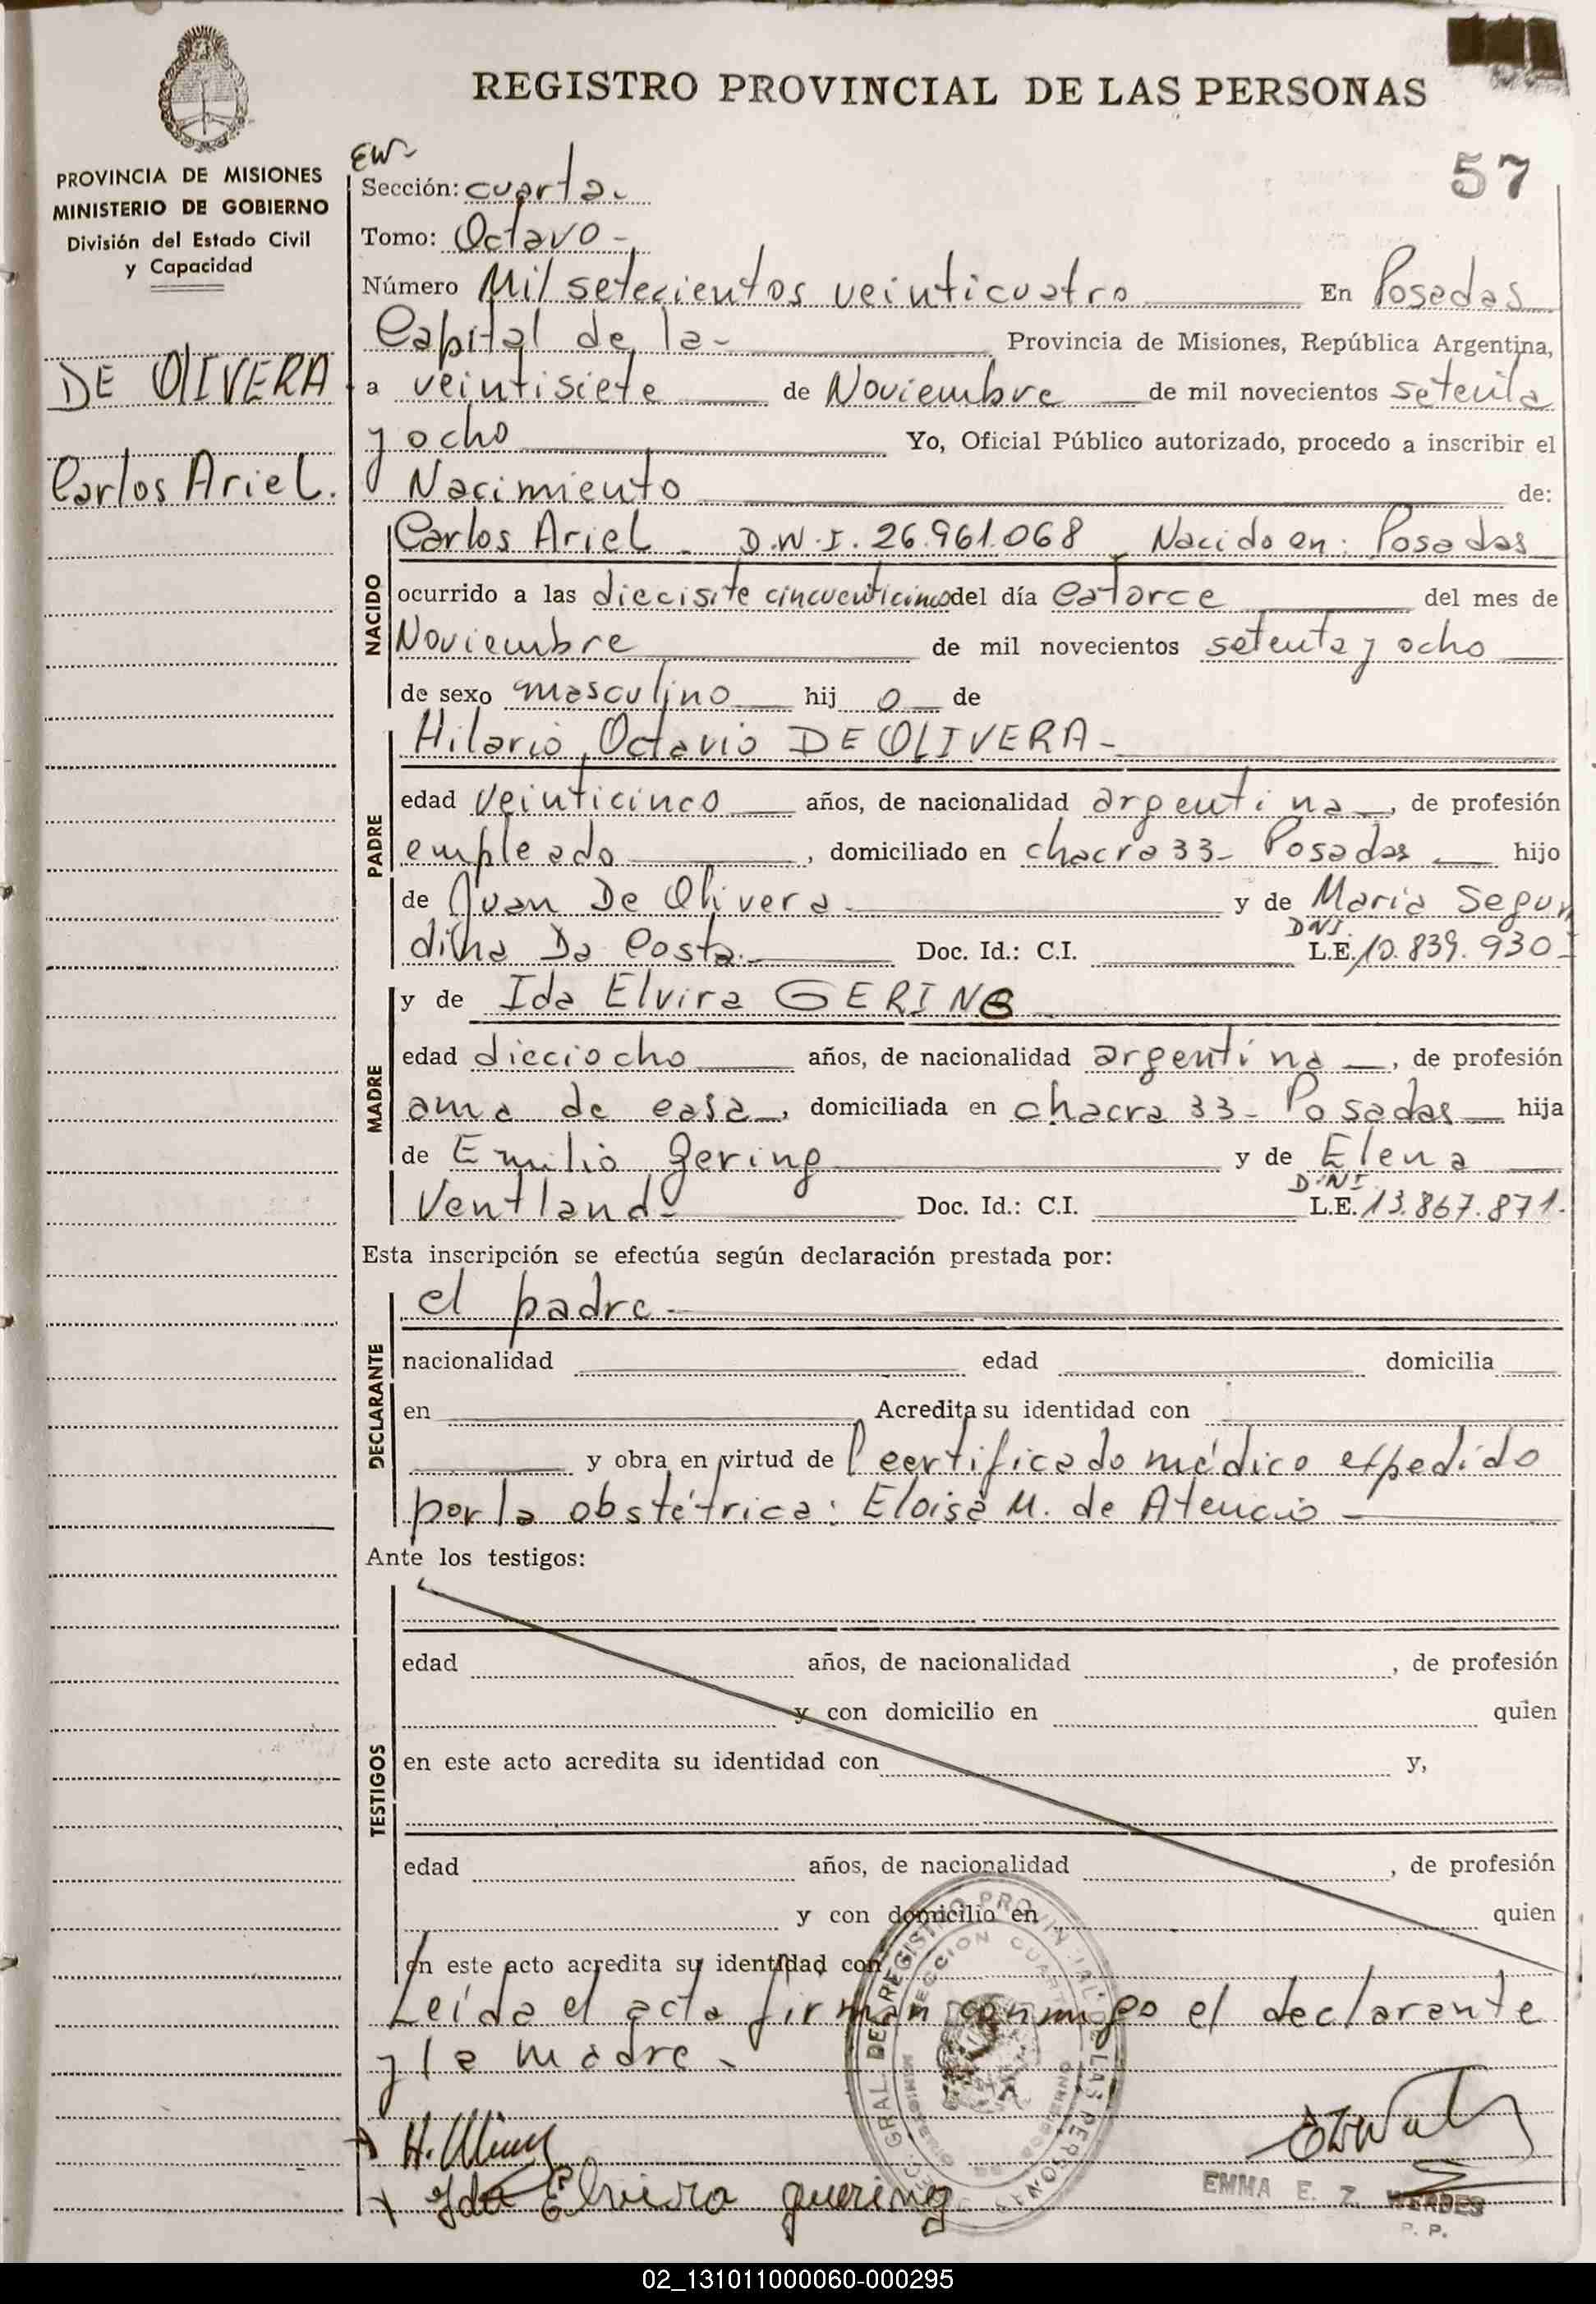 REGISTRO PROVINCIAL DE LAS PERSONAS
57
PROVINCIA DE MISIONES
MINISTERIO DE GOBIERNO
División del Estado Civil
y Capacidad
DE OLIVERA
Carlos Ariel.
EW-
Sección: cuarta.
Tomo: Octavo -
Número Mil setecientos veinticuatro En Posadas
Capital de la - Provincia de Misiones, República Argentina,
a veintisiete de Noviembre de mil novecientos setenta
y ocho Yo, Oficial Público autorizado, procedo a inscribir el
Nacimiento de:
NACIDO
Carlos Ariel - D.N.I. 26.961.068 Nacido en: Posadas
ocurrido a las diecisite cincuenticinco del día catorce del mes de
Noviembre de mil novecientos setenta y ocho
de sexo masculino hij o de
PADRE
Hilario Octavio DE OLIVERA -
edad veinticinco años, de nacionalidad argentina, de profesión
empleado, domiciliado en chacra 33- Posadas hijo
de Juan De Olivera y de Maria Segun
DNI.
dina Da Costa. Doc. Id.: C.I. L.E. 10.839.930-
MADRE
y de Ida Elvira GERING
edad dieciocho años, de nacionalidad argentina, de profesión
ama de casa, domiciliada en chacra 33- Posadas hija
de Emilio Gering y de Elena
D.N.I.
Ventland- Doc. Id.: C.I. L.E. 13.867.871.
Esta inscripción se efectúa según declaración prestada por:
DECLARANTE
el padre -
nacionalidad edad domicilia
en Acredita su identidad con
y obra en virtud de certificado médico expedido
por la obstétrica: Eloisa M. de Atencio -
Ante los testigos:
TESTIGOS
edad años, de nacionalidad , de profesión
y con domicilio en quien
en este acto acredita su identidad con y,
edad años, de nacionalidad , de profesión
y con domicilio en quien
en este acto acredita su identidad con
Leída el acta firman conmigo el declarante
y la madre -
Ida Elvira guering
EMMA E. Z.
P. P.
02_131011000060-000295